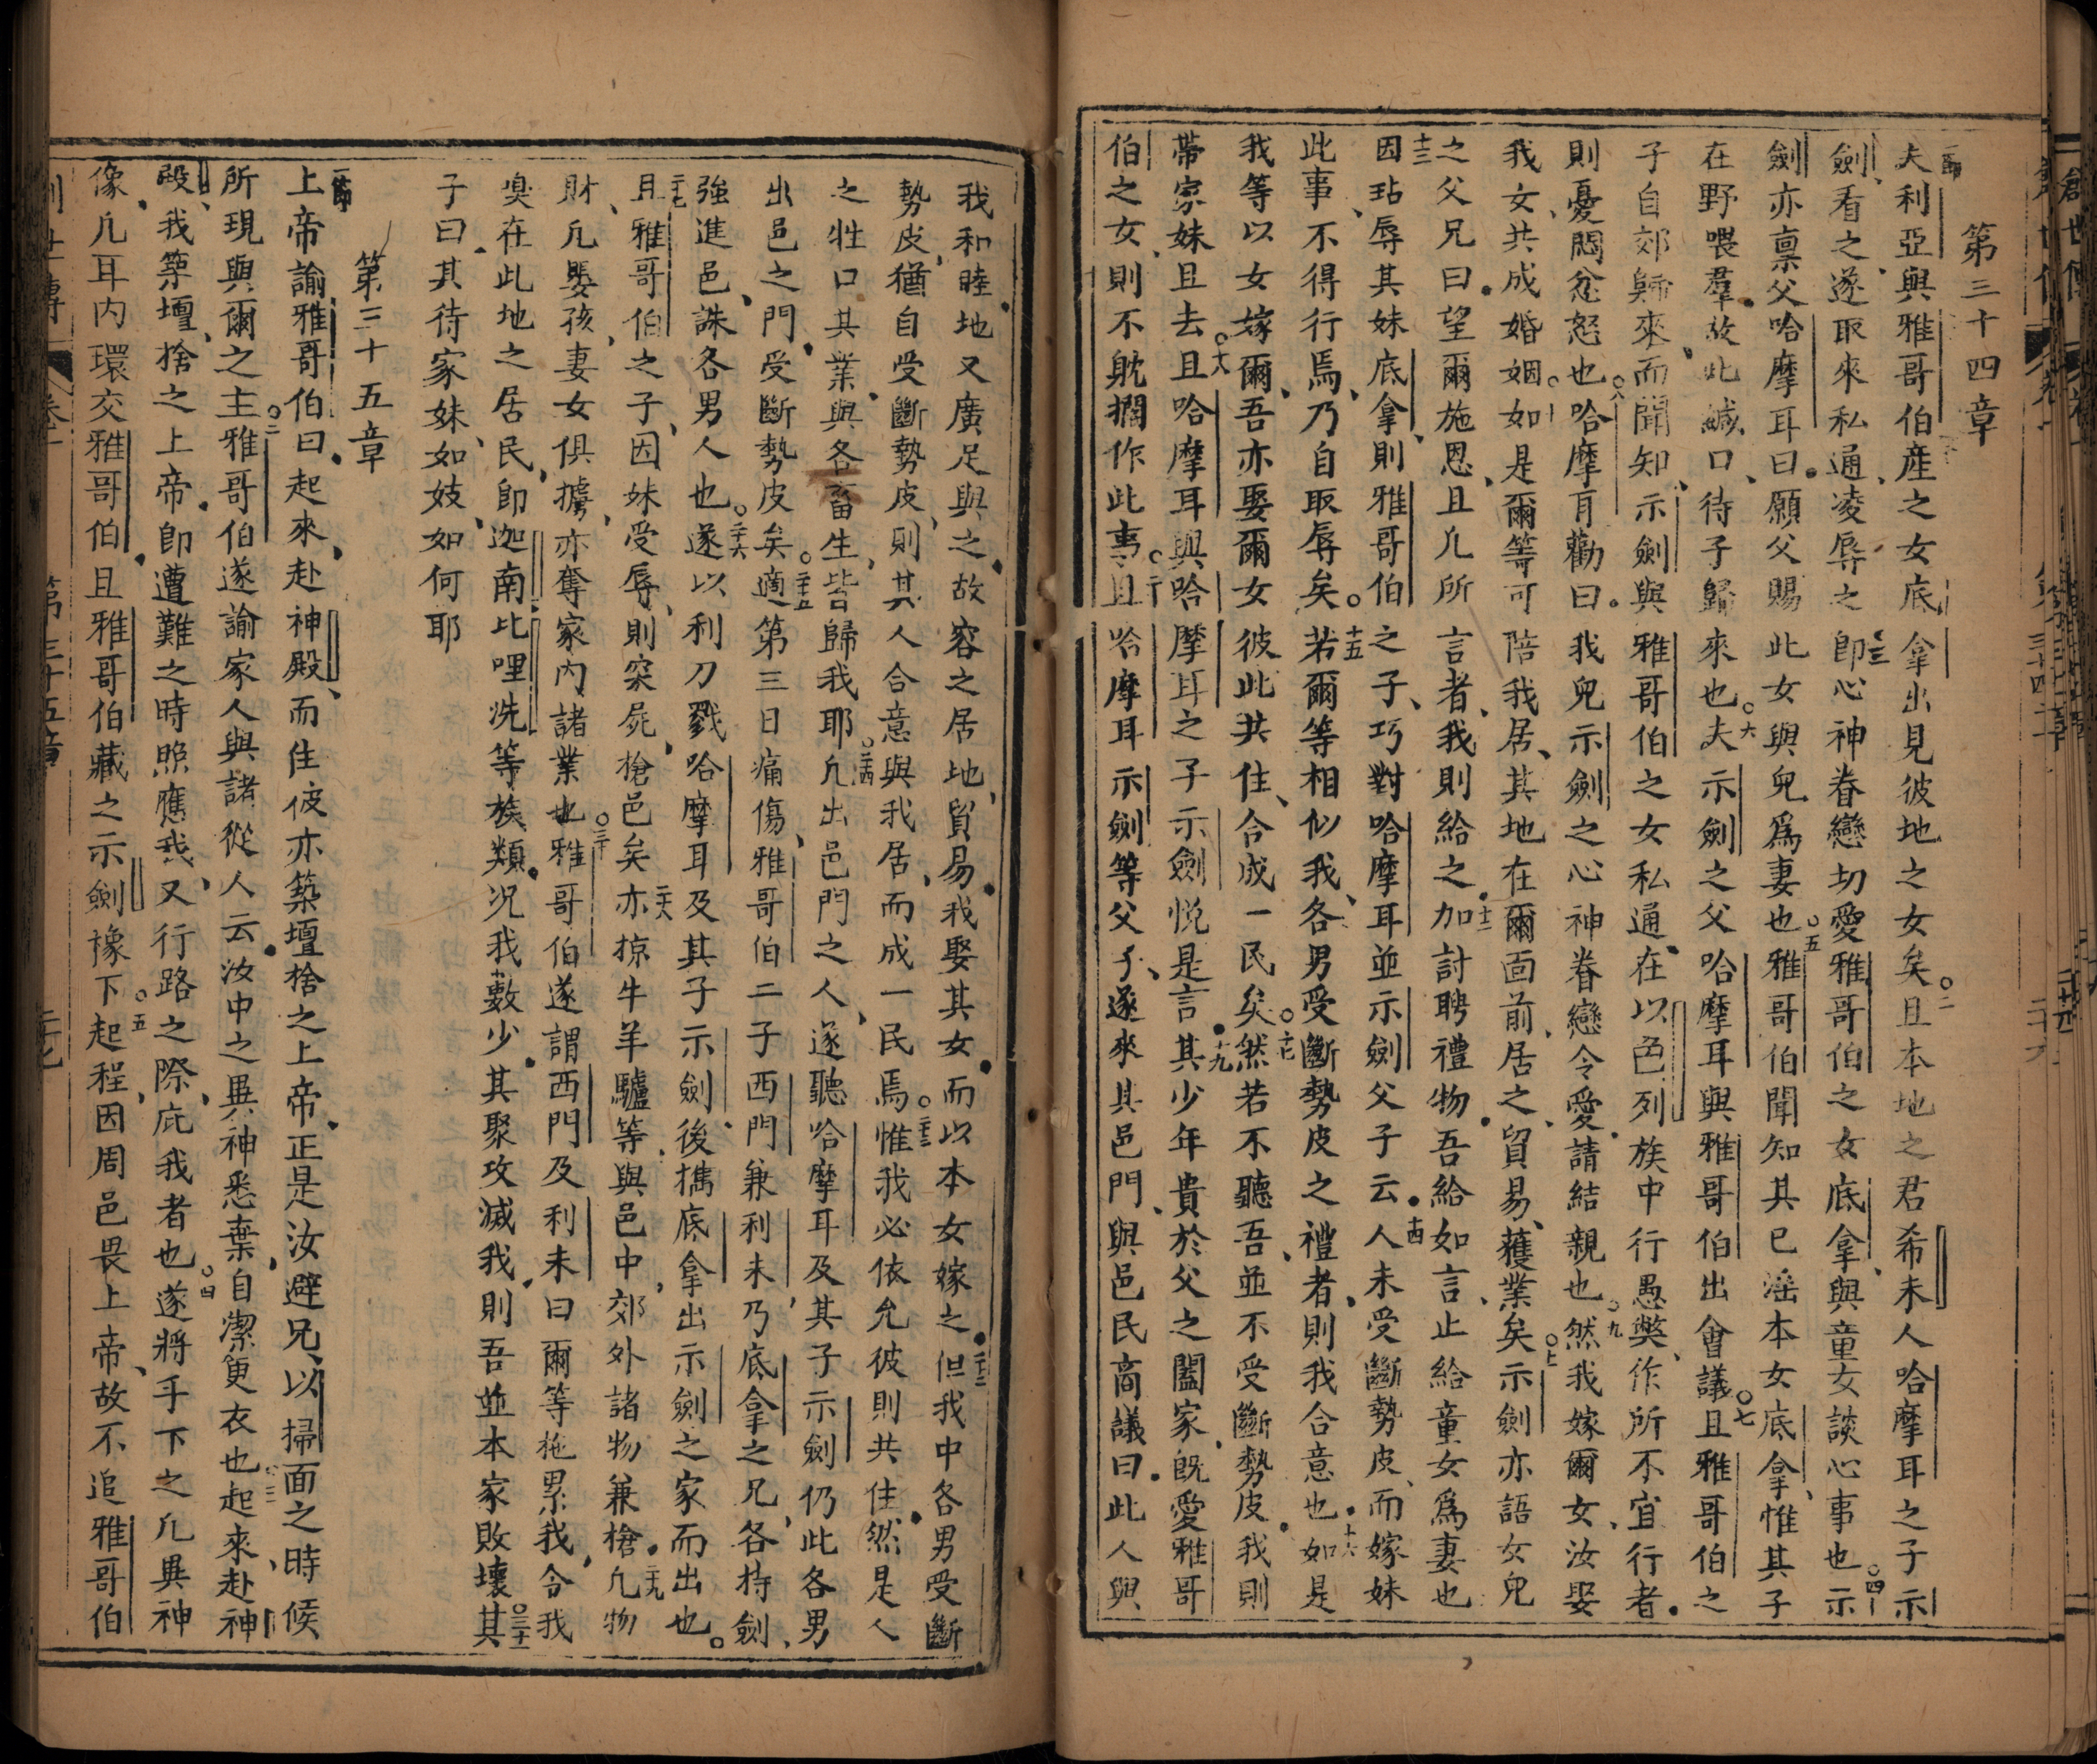 第三十四章
一節夫利亞與雅哥伯産之女底拿出見彼地之女矣○二且本地之君希未人哈摩耳之子示
劍看之遂取來私通凌辱之○三卽心神眷戀切愛雅哥伯之女底拿與童女談心事也○四示
劍亦禀父哈摩耳曰願父賜此女與兒爲妻也○五雅哥伯聞知其已淫本女底拿惟其子
在野喂羣故此緘口待子歸來也○六夫示劍之父哈摩耳與雅哥伯出會議○七且雅哥伯之
子自郊歸來而聞知示劍與雅哥伯之女私通在以色列族中行愚弊作所不宜行者
則憂悶忿怒也○八哈摩耳勸曰我兒示劍之心神眷戀令愛請結親也○九然我嫁爾女汝娶
我女共成婚姻○十如是爾等可陪我居其地在爾面前居之貿易獲業矣○十一示劍亦語女兒
之父兄曰望爾施恩且凡所言者我則給之○十二加討聘禮物吾給如言止給童女爲妻也
十三因玷辱其妹底拿則雅哥伯之子巧對哈摩耳並示劍父子云○十四人未受斷勢皮而嫁妹
此事不得行焉乃自取辱矣○十五若爾等相似我各男受斷勢皮之禮者則我合意也○十六如是
我等以女嫁爾吾亦娶爾女彼此共住合成一民矣○十七然若不聽吾並不受斷勢皮我則
帶家妹且去○十八且哈摩耳與哈摩耳之子示劍悅是言○十九其少年貴於父之闔家旣愛雅哥
伯之女則不躭擱作此事○二十且哈摩耳示劍等父子遂來其邑門與邑民商議曰此人與
我和睦地又廣足與之故容之居地貿易我娶其女而以本女嫁之○二十二但我中各男受斷
勢皮猶自受斷勢皮則其人合意與我居而成一民焉○二十三惟我必依允彼則共住然是人
之牲口其業與各畜生皆歸我耶○二十四凡出邑門之人遂聽哈摩耳及其子示劍仍此各男
出邑之門受斷勢皮矣○二十五適第三日痛傷雅哥伯二子西門兼利未乃底拿之兄各持劍
強進邑誅各男人也○二十六遂以利刀戮哈摩耳及其子示劍後攜底拿出示劍之家而出也
二十七且雅哥伯之子因妹受辱則突屍槍邑矣二十八亦掠牛羊驢等與邑中郊外諸物兼槍凡物
二十九財凡嬰孩妻女俱擄亦奪家內諸業也○三十雅哥伯遂謂西門及利未曰爾等拖累我令我
臭在此地之居民卽迦南比哩洗等族類况我數少其聚攻滅我則吾並本家敗壞○三十一其
子曰其待家妹如妓如何耶
第三十五章
一節上帝諭雅哥伯曰起來赴神殿而住彼亦築壇捨之上帝正是汝避兄以掃面之時候
所現與爾之主○二雅哥伯遂諭家人與諸從人云汝中之異神悉棄自潔更衣也○三起來赴神
殿我築壇捨之上帝卽遭難之時照應我又行路之際庇我者也○四遂將手下之凡異神
像凡耳內環交雅哥伯且雅哥伯藏之示劍橡下○五起程因周邑畏上帝故不追雅哥伯